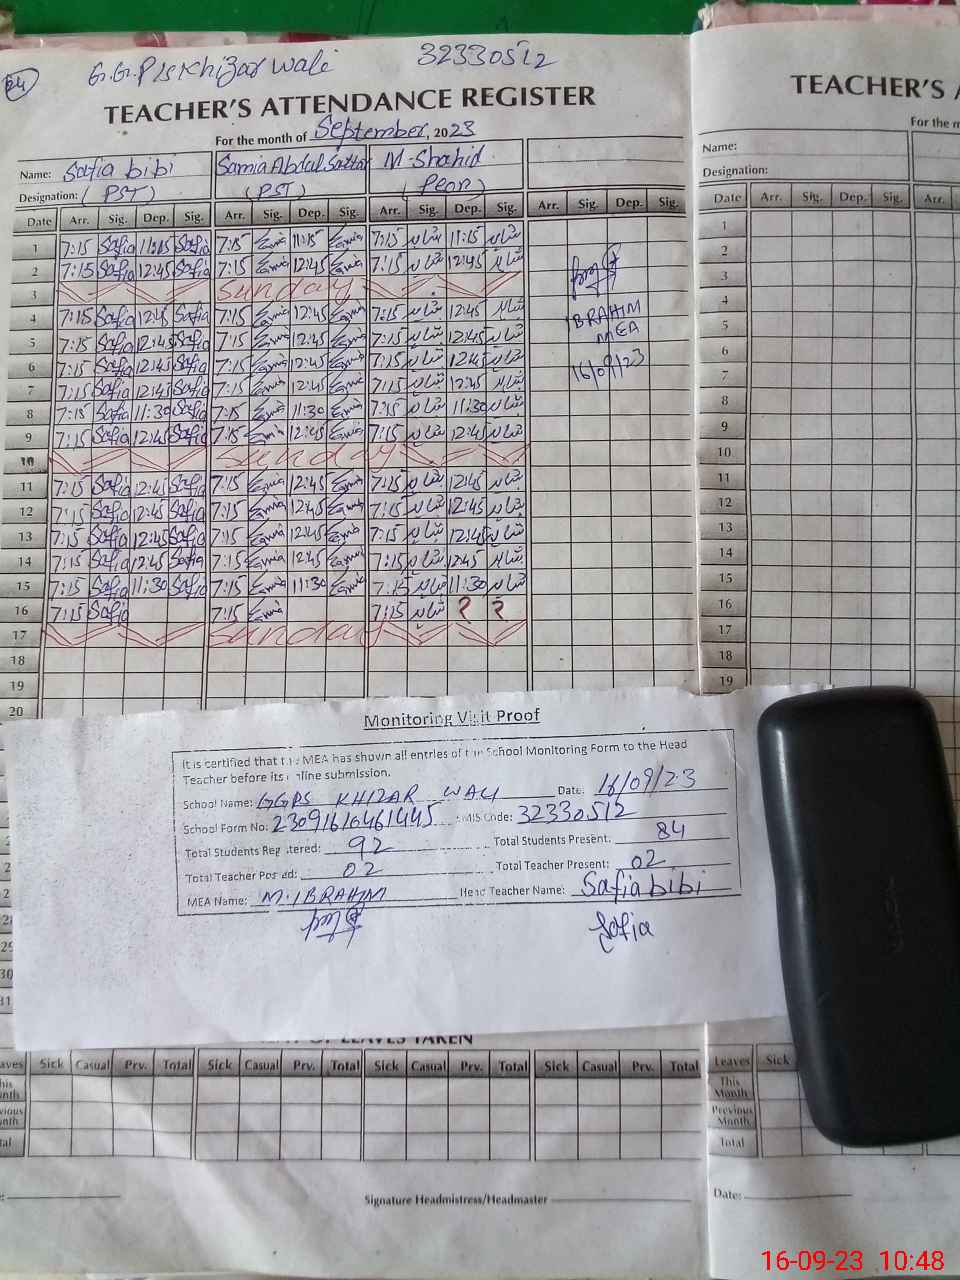 24 G.G.P/S Khizar Wali 32330512
TEACHER'S ATTENDANCE REGISTER
For the month of September, 2023
Name: Safia bibi Samia Abdul Sattar M-Shahid
Designation: (PST) (PST) (Peon)
Date Arr. Sig. Dep. Sig. Arr. Sig. Dep. Sig. Arr. Sig. Dep. Sig. Arr. Sig. Dep. Sig.
1 7:15 Safia 11:15 Safia 7:15 11:15 7:15 11:15
2 7:15 Safia 12:45 Safia 7:15 12:45 7:15 12:45
3 Sunday
4 7:15 Safia 12:45 Safia 7:15 12:45 7:15 12:45
5 7:15 Safia 12:45 Safia 7:15 12:45 7:15 12:45
6 7:15 Safia 12:45 Safia 7:15 12:45 7:15 12:45
7 7:15 Safia 12:45 Safia 7:15 12:45 7:15 12:45
8 7:15 Safia 11:30 Safia 7:15 11:30 7:15 11:30
9 7:15 Safia 12:45 Safia 7:15 12:45 7:15 12:45
10 Sunday
11 7:15 Safia 12:45 Safia 7:15 12:45 7:15 12:45
12 7:15 Safia 12:45 Safia 7:15 12:45 7:15 12:45
13 7:15 Safia 12:45 Safia 7:15 12:45 7:15 12:45
14 7:15 Safia 12:45 Safia 7:15 12:45 7:15 12:45
15 7:15 Safia 11:30 Safia 7:15 11:30 7:15 11:30
16 7:15 Safia 7:15 7:15 ? ?
17 Sunday
18
19
20
IBRAHIM
MEA
16/09/23
Monitoring Visit Proof
It is certified that the MEA has shown all entries of the School Monitoring Form to the Head
Teacher before its online submission.
School Name: GGPS KHIZAR WALI Date: 16/09/23
School Form No: 23091610461445 EMIS Code: 32330512
Total Students Registered: 92 Total Students Present: 84
Total Teacher Posted: 02 Total Teacher Present: 02
MEA Name: M. IBRAHIM Head Teacher Name: Safia bibi
Safia
29
30
31
OF LEAVES TAKEN
Sick Casual Prv. Total Sick Casual Prv. Total Sick Casual Prv. Total Sick Casual Prv. Total
Signature Headmistress/Headmaster
TEACHER'S A
For the m
Name:
Designation:
Date Arr. Sig. Dep. Sig. Arr.
1
2
3
4
5
6
7
8
9
10
11
12
13
14
15
16
17
18
19
Leaves Sick
This Month
Previous Month
Total
Date:
16-09-23 10:48